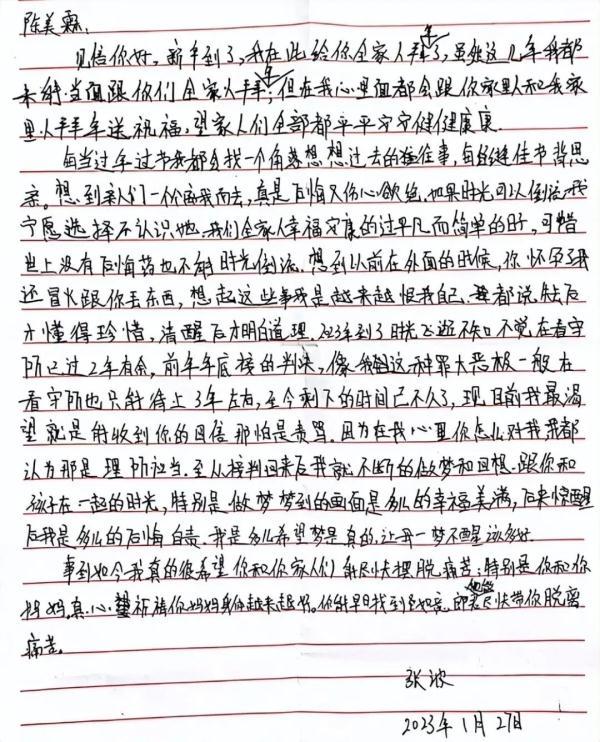 陈美霖:
见信你好,新年到了,我在此给你全家人拜年了,虽然这几年我都
未能当面跟你们全家人拜年,但在我心里面都会跟你家里人和我家
里人拜年送祝福,望家人们全部都平平安安健健康康.
每当过年过节我都会找一个角落想想过去的种往事,每逢佳节背思
亲。想到亲人们一个个离我而去,真是后悔又伤心欲绝,如果时光可以倒流我
宁愿选择不认识她,我们全家人幸福安康的过平凡而简单的日子,可惜
世上没有后悔药也不能时光倒流.想到以前在外面的时候,你怀孕了我
还冒火跟你丢东西,想起这些事我是越来越恨我自己.我都说失后
才懂得珍惜,清醒后才明白道理.2023年到了时光飞逝不知不觉在看守
所已过2年有余,前年年底接的判决,像我们这种罪大恶极一般在
看守所也只能待上3年左右,至今剩下的时间已不久了,现目前我最渴
望就是能收到你的回信那怕是责骂.因为在我心里你怎么对我我都
认为那是理所应当.至从接判回来后我就不断的做梦和回想.跟你和
孩子在一起的时光,特别是做梦梦到的画面是多么的幸福美满,后来惊醒
后我是多么的后悔自责.我是多么希望梦是真的,让我一梦不醒该多好.
事到如今我真的很希望你和你家人们能尽快摆脱痛苦:特别是你和你
妈妈.真心祈祷你妈妈身体越来越好.你能早日找到如意 尽快带你脱离
痛苦。
张波
2023年1月27日